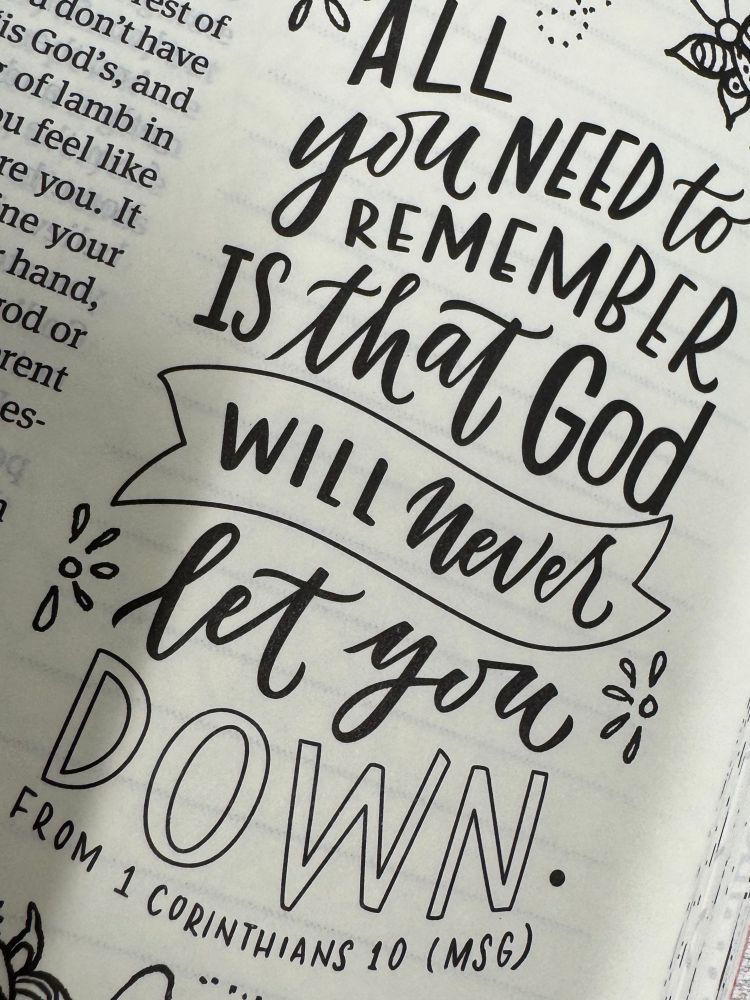 rest of
u don't have
is God's, and
g of lamb in
ou feel like
re you. It
ine your
r hand,
god or
erent
es-
ALL
you NEED to
REMEMBER
IS that God
WILL never
let you
DOWN.
FROM 1 CORINTHIANS 10 (MSG)